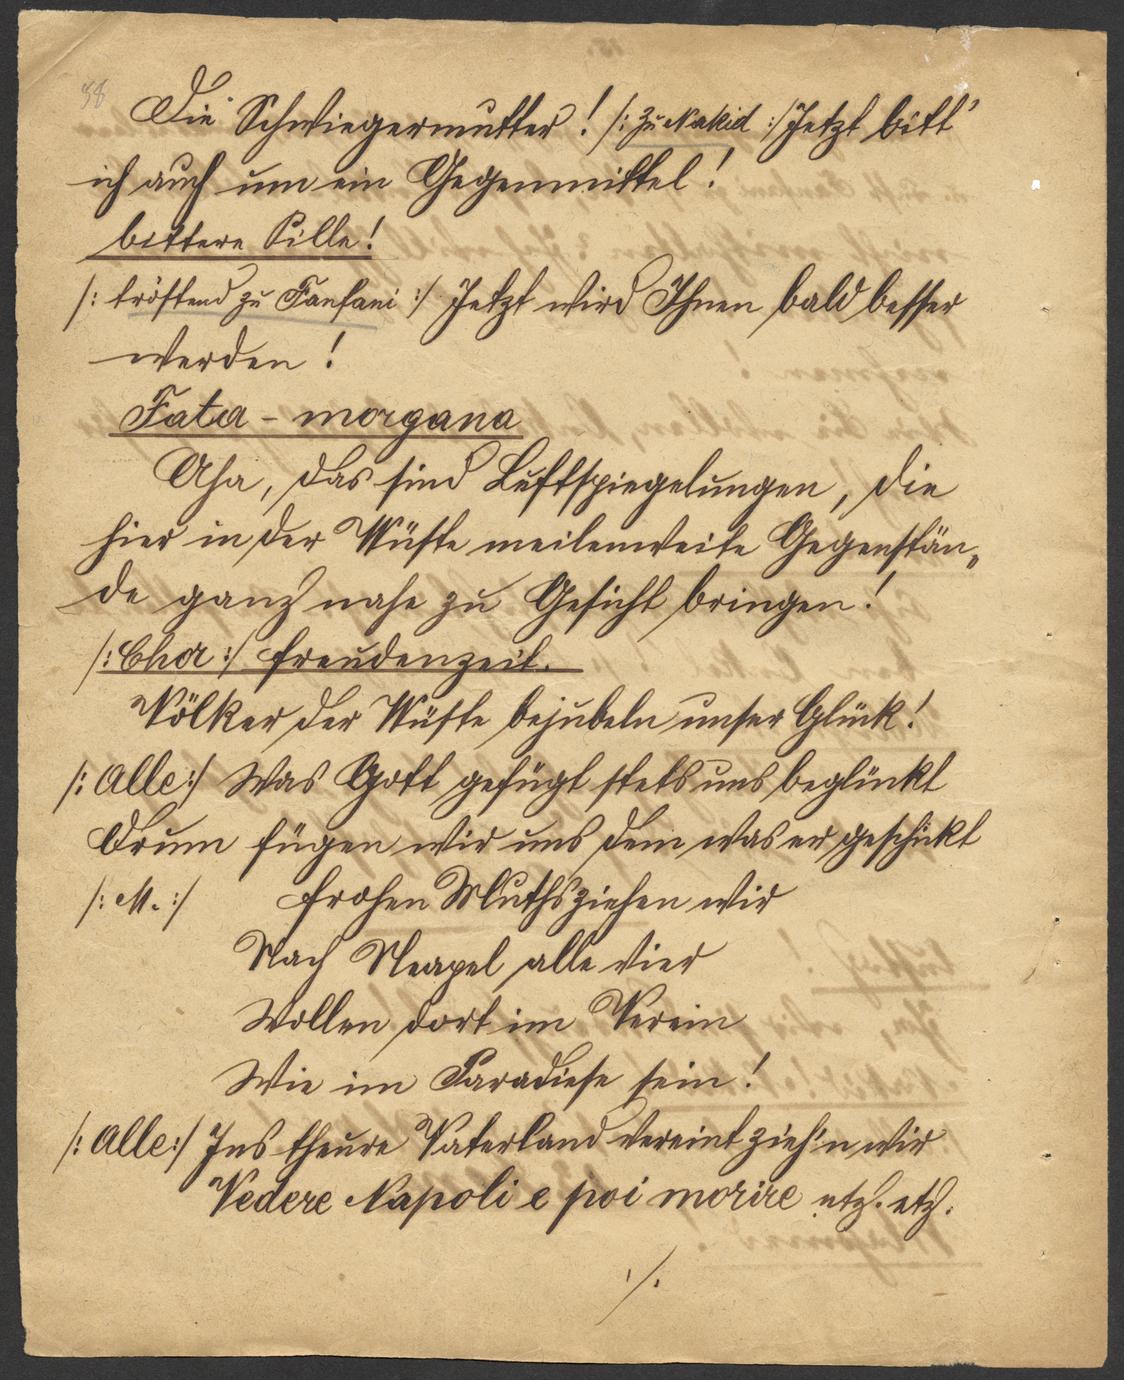 38
Die Schwiegermutter! /: zu Nakid :/ Jetzt bitt'
ich auch um ein Gegenmittel!
bittere Pille!
/: tröstend zu Fanfani :/ Jetzt wird Ihnen bald besser
werden!
Fata - morgana
Aha, das sind Luftspiegelungen, die
hier in der Wüste meilenweite Gegenstän„
de ganz nahe zu Gesicht bringen!
/: Chor :/ Freudenzeit.
Völker der Wüste bejubeln unser Glück!
/: Alle :/ Was Gott gefügt stets uns beglückt
Drum fügen wir uns dem was er geschickt
/: M. :/ Frohen Muths ziehen wir
Nach Neapel alle vier
Wollen dort im Verein
Wie im Paradiese sein!
/: Alle :/ Ins theure Vaterland vereint zieh'n wir
Vedere Napoli e poi morire etz. etz.
./.